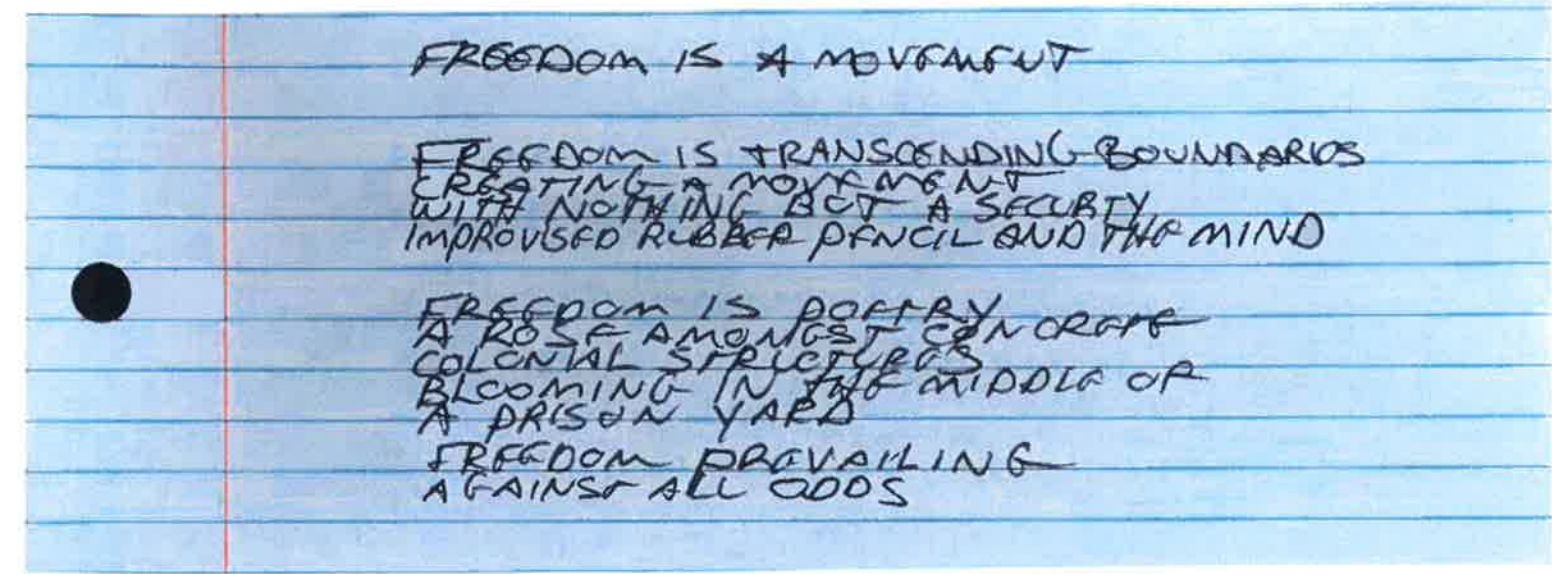 FREEDOM IS A MOVEMENT
FREEDOM IS TRANSCENDING BOUNDARIES
CREATING A MOVEMENT
WITH NOTHING BUT A SECURTY
IMPROVISED RUBBER PENCIL AND THE MIND
FREEDOM IS POETRY
A ROSE AMONGST CONCRETE
COLONIAL STRUCTURES
BLOOMING IN THE MIDDLE OF
A PRISON YARD
FREEDOM PREVAILING
AGAINST ALL ODDS